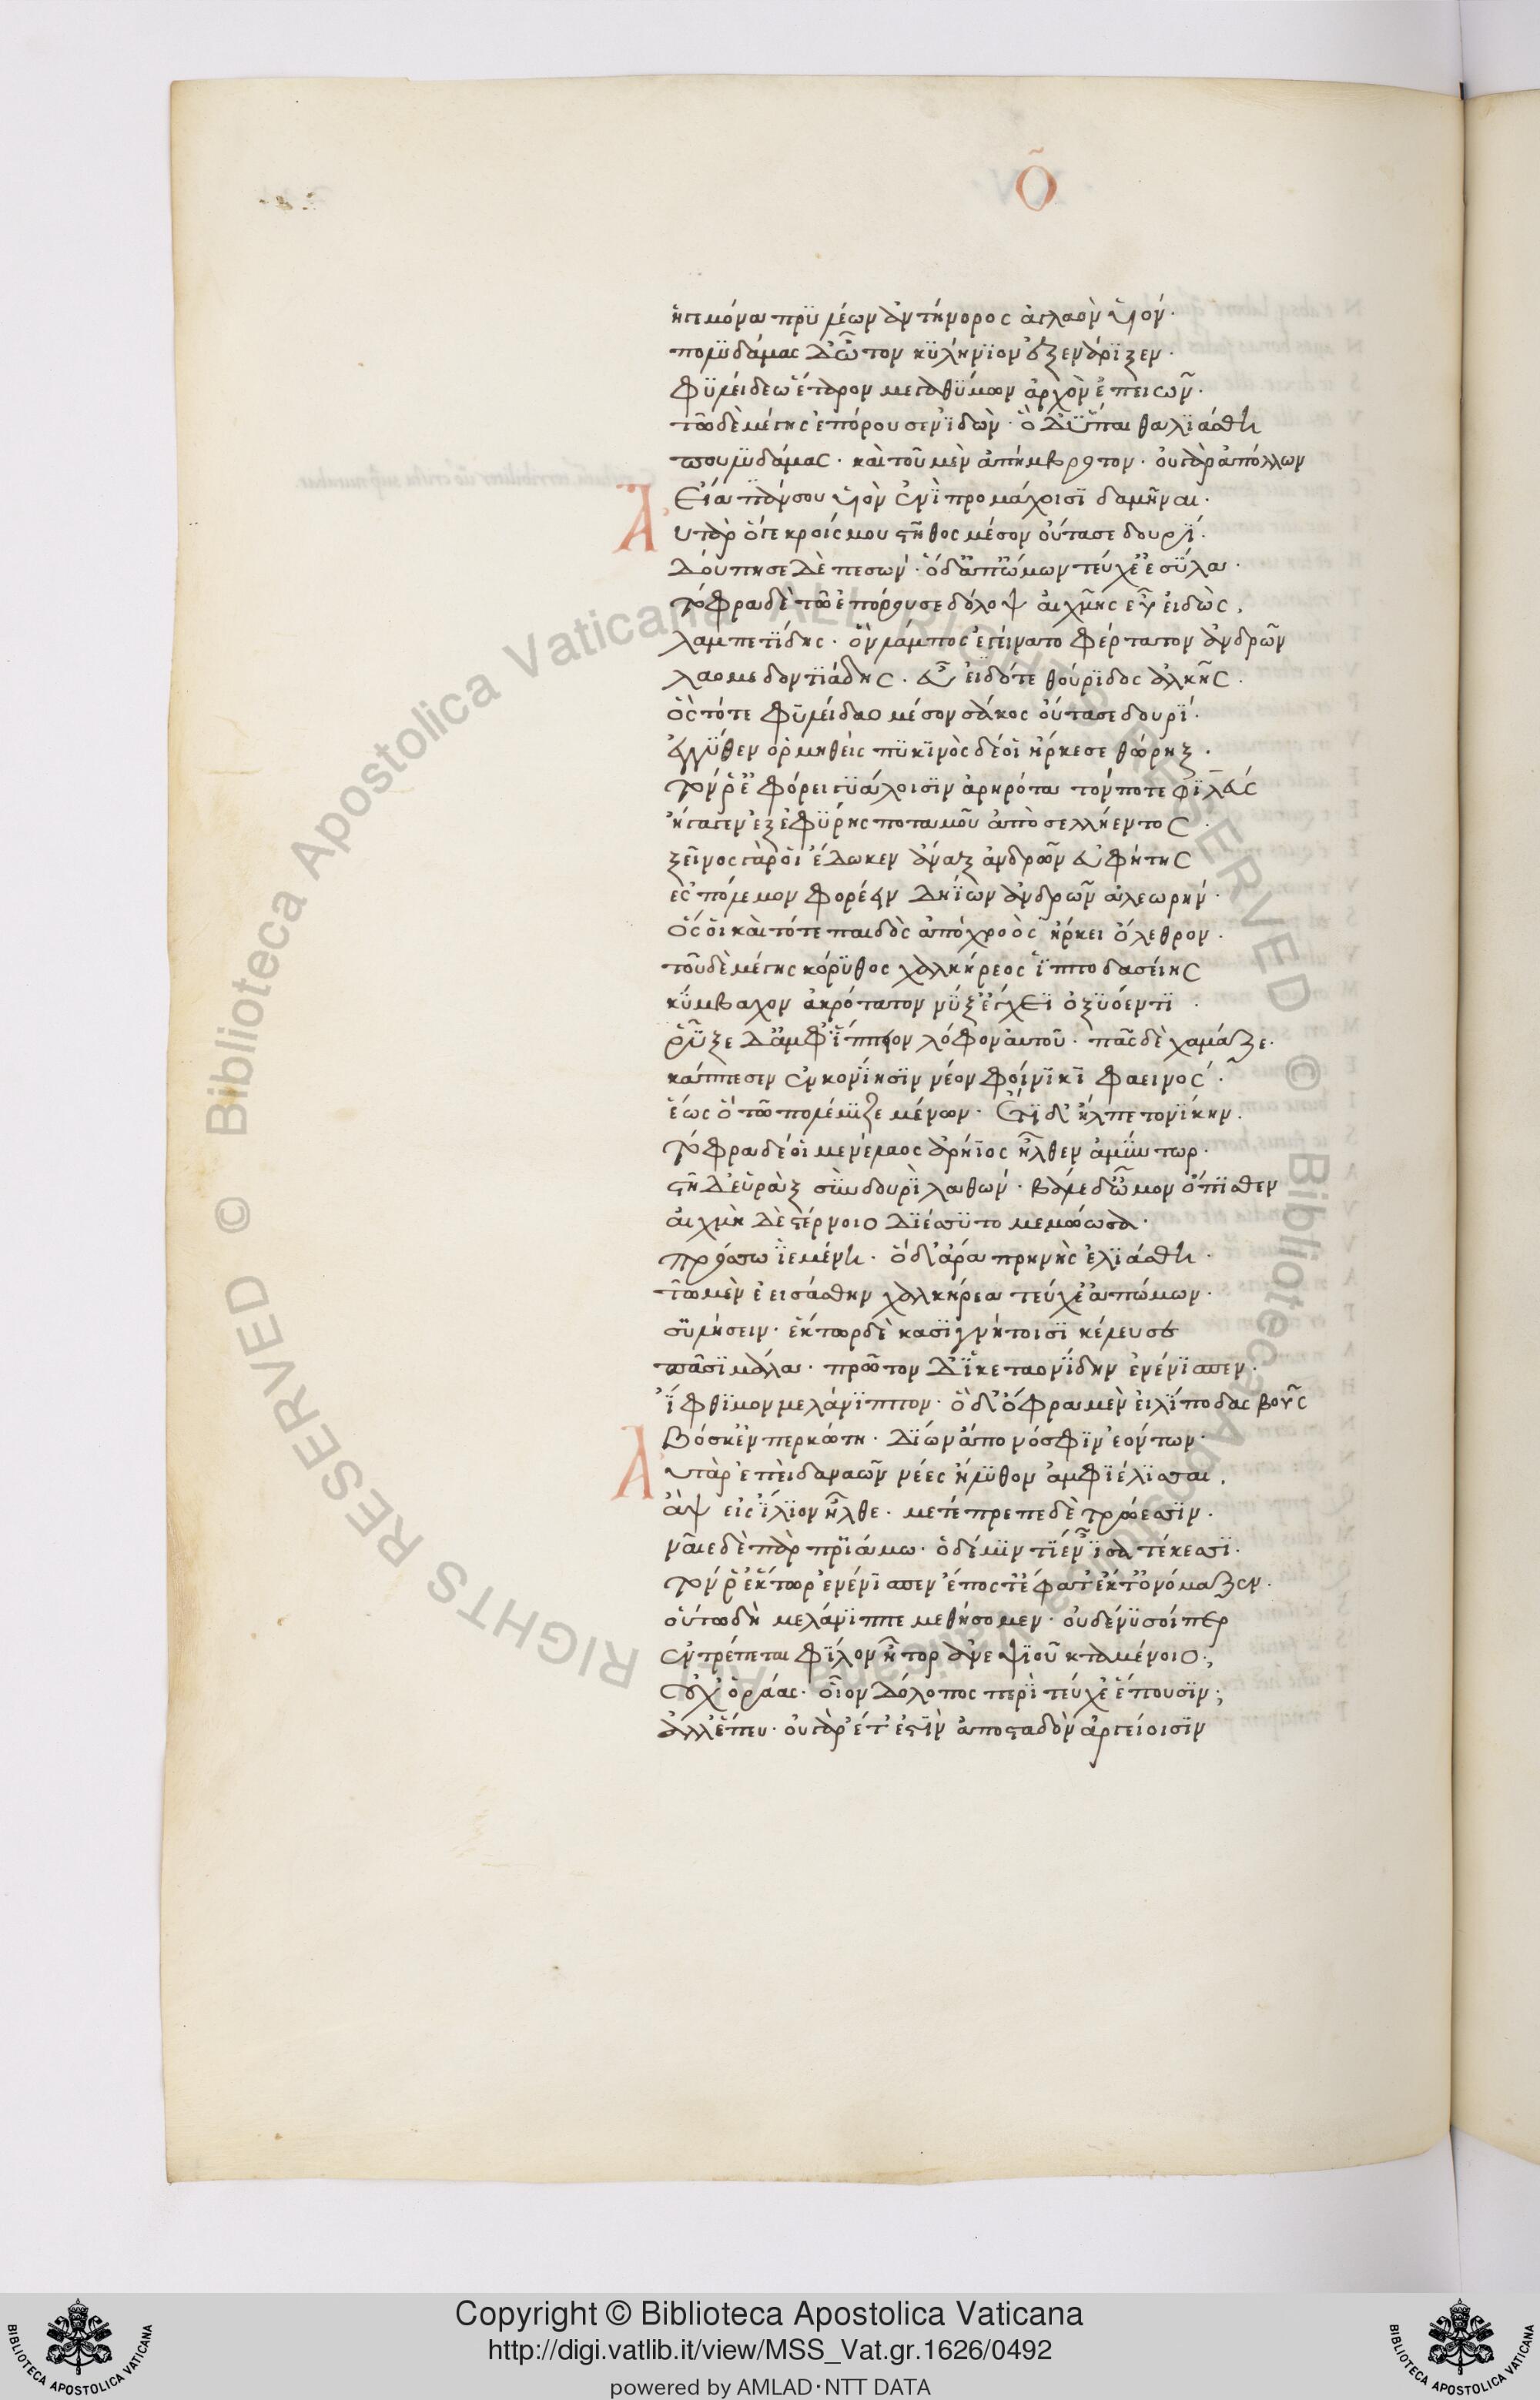 Õ
ἥπε μόνα πρϋλέων ἀντήνορος ἀγλαὸν ὑϊόν·
πολυδάμας δ' ὦτον κϋλήνϊον ἐξενάρϊξεν·
φϋλείδεω ἕταρον μεγαθύμων ἀρχὸν ἐπειῶν·
τῶ δὲ μέγης ἐπόρουσεν ἰδών· ὁ δ' ὕπαιθα λϊάσθη
πουλυδάμας· καὶ τοῦ μὲν ἀπήμβροτον· οὐ γὰρ ἀπόλλων
Εἴα πάνθου ὑιὸν ἐνὶ προμάχοισϊ δαμῆναι·
Αὐτὰρ ὅγε κροίσμου στῆθος μέσον οὔτασε δουρί·
Δούπησε δὲ πεσών· ὁ δ' ἀπ' ὤμων τεύχε' ἐσύλα·
τόφρα δὲ τῶ ἐπόρουσε δόλοψ αἰχμῆς εὖ εἰδὼς,
λαμπετίδης· ὃν λάμπος ἐγείνατο φέρτατον ἀνδρῶν
λαομεδοντϊάδης· εὖ εἰδότε θούρϊδος ἀλκῆς·
ὃς τότε φϋλείδαο μέσον σάκος οὔτασε δουρί·
ἐγγύθεν ὁρμηθείς πϋκϊνὸς δέ οἱ ἤρκεσε θώρηξ·
τόν ῥ' ἐφόρει γυάλοισϊν ἀρηρότα τόν ποτε φϊλεύς
ἤγαγεν ἐξ ἐφύρης ποταμοῦ ἀπὸ σελλήεντος·
ξεῖνος γάρ οἱ ἔδωκεν ἄναξ ἀνδρῶν εὐφήτης
ἐς πόλεμον φορέειν δηΐων ἀνδρῶν ἀλεωρήν·
ὅς οἱ καὶ τότε παιδὸς ἀπὸ χροὸς ἤρκει ὄλεθρον·
τοῦ δὲ μέγης κόρϋθος χαλκήρεος ἱπποδασείης
κύμβαχον ἀκρότατον νύξ' ἔγχεϊ ὀξυόεντϊ·
ῥῆξε δ' ἀμφ' ἵππειον λόφον αὐτοῦ· πᾶς δὲ χαμᾶζε·
κάππεσεν ἐν κονίησϊν νέον φοίνϊκϊ φαεινός·
ἕως ὁ τῶ πολέμιζε μένων· ἔτϊ δ' ἤλπετο νίκην·
τόφρα δέ οἱ μενέλαος ἀρήϊος ἦλθεν ἀμύντωρ·
στῆ δ' εὐρὰξ σὺν δουρὶ λαθών· βάλε δ' ὦμον ὄπϊσθεν
αἰχμὴ δὲ στέρνοιο δϊέσσϋτο μεμώωσα·
πρόσσω ἱεμένη· ὁ δ' ἄρα πρηνὴς ἐλϊάσθη·
τὼ μὲν ἐεισάσθην χαλκήρεα τεύχε' ἀπ' ὤμων·
σϋλήσειν· ἕκτωρ δὲ κασϊγνήτοισϊ κέλευσε
πᾶσϊ μάλα· πρῶτον δ' ἱκεταονίδην ἐνένϊσπεν·
ἴφθϊμον μελάνϊππον· ὁ δ' ὄφρα μὲν εἰλίποδας βοῦς
Βόσκ' ἐν περκώτη· δϊΐων ἄπο νόσφϊν ἐόντων·
Αὐτὰρ ἐπεὶ δαναῶν νέες ἤλϋθον ἀμφϊέλϊσσαι,
ἂψ εἰς ἴλϊον ἦλθε· μετέπρεπε δὲ τρώεσσϊν·
ναῖε δὲ πὰρ πρϊάμω· ὁ δέ μιν τίεν ἶσα τέκεσσϊ·
τόν ῥ' ἕκτωρ ἐνένϊσπεν ἔπος τ' ἔφατ' ἔκ τ' ὀνόμαζεν·
οὕτω δὴ μελάνϊππε μεθήσομεν· οὐδέ νϋ σοί περ
ἐντρέπεται φίλον ἦτορ ἀνεψϊοῦ κταμένοιο;
οὐχ ὁράας· οἷον δόλοπος περὶ τεύχε' ἕπουσϊν;
ἀλλ' ἕπευ· οὐ γὰρ ἔτ' ἐστὶν ἀποσταδὸν ἀργείοισϊν
© Biblioteca Apostolica Vaticana ALL RIGHTS RESERVED © Biblioteca Apostolica Vaticana ALL RIGHTS RESERVED
BIBLIOTECA APOSTOLICA VATICANA
Copyright © Biblioteca Apostolica Vaticana
http://digi.vatlib.it/view/MSS_Vat.gr.1626/0492
powered by AMLAD·NTT DATA
BIBLIOTECA APOSTOLICA VATICANA